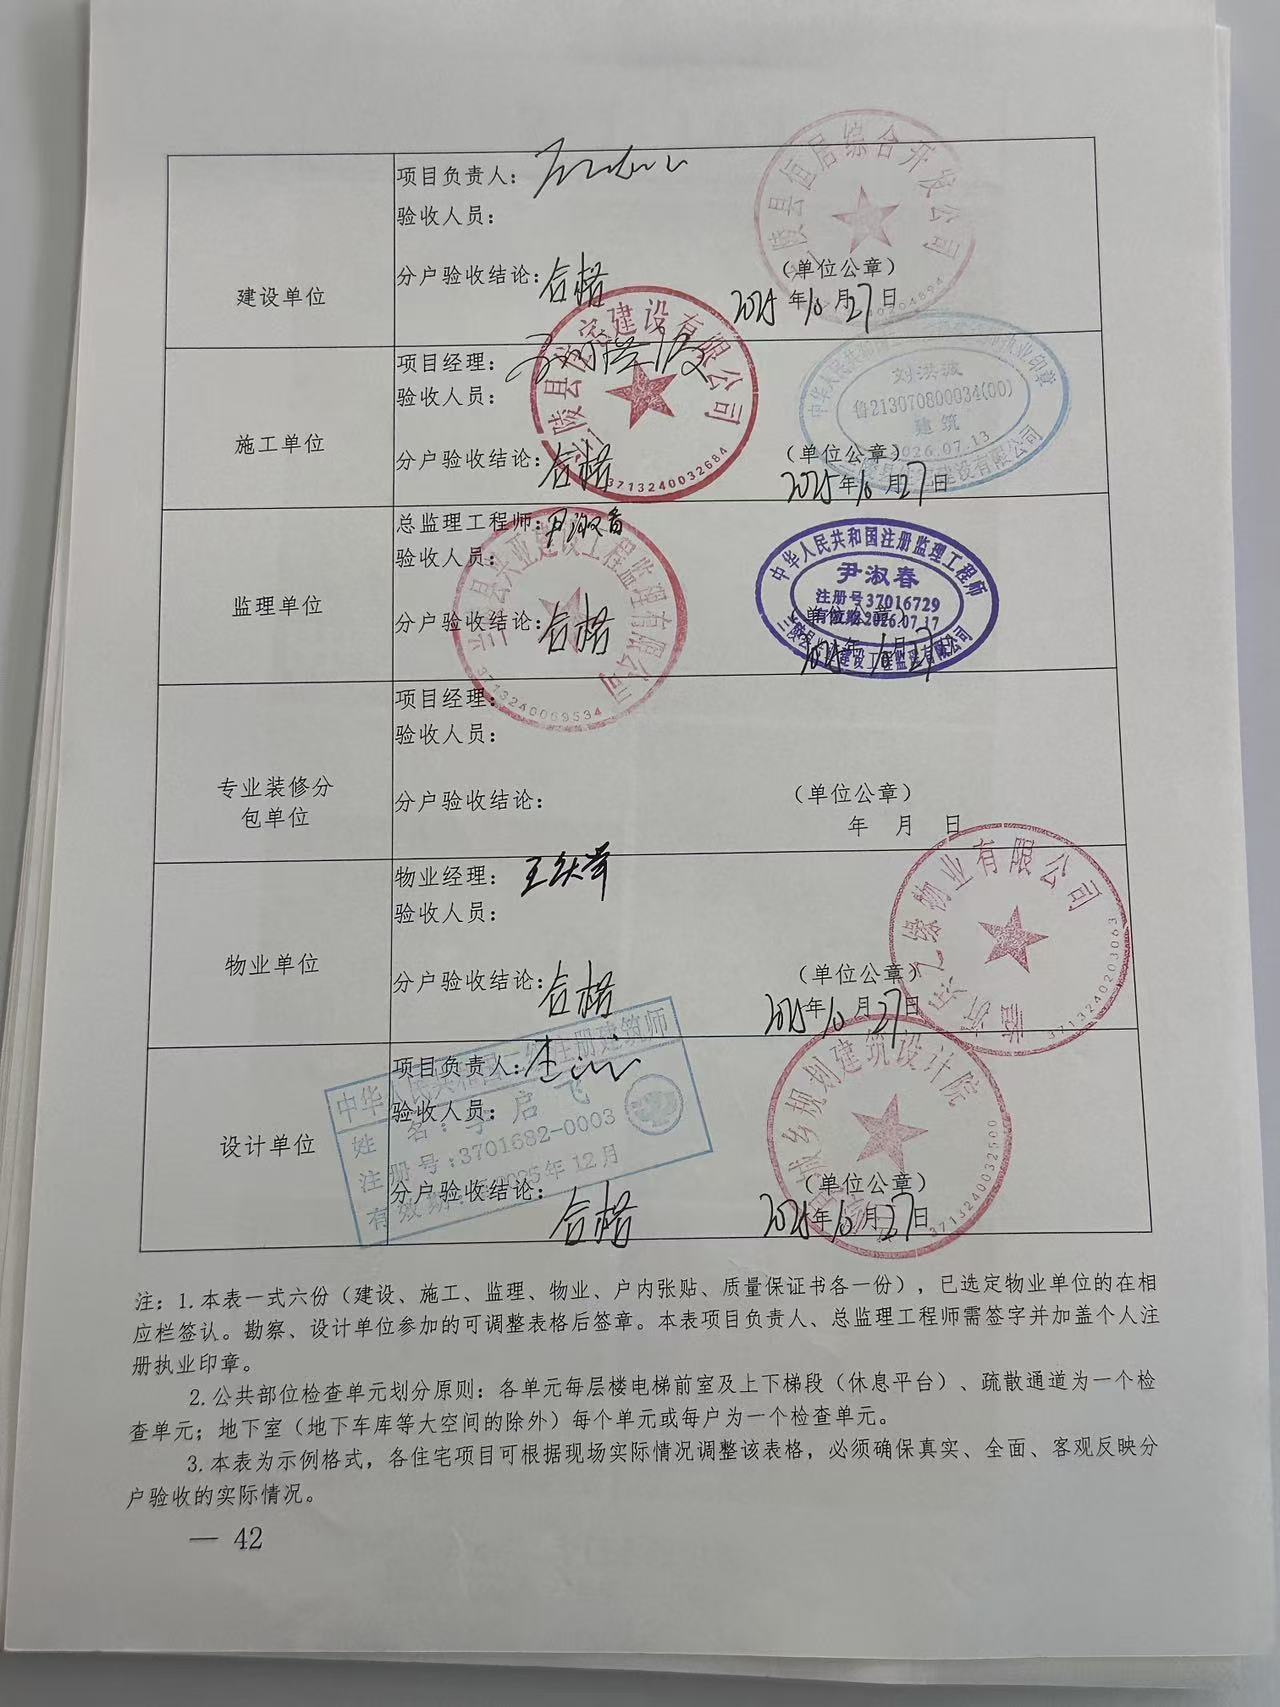 项目负责人：
验收人员：
分户验收结论：合格
（单位公章）
建设单位
2025年10月27日
陵县恒居综合开发公司
项目经理：
验收人员：
施工单位
分户验收结论：合格
（单位公章）
2025年10月27日
建设有限公司
3713240032684
刘洪波
鲁213070800034(00)
建筑
2026.07.13
总监理工程师：尹淑春
验收人员：
监理单位
分户验收结论：合格
（单位公章）
2025年10月27日
县兴业建设工程监理有限公司
3713240069534
中华人民共和国注册监理工程师
尹淑春
注册号37016729
有效期2026.07.17
兰陵县兴业建设工程监理有限公司
项目经理：
验收人员：
专业装修分
包单位
分户验收结论：
（单位公章）
年 月 日
物业经理：
验收人员：
物业单位
分户验收结论：合格
（单位公章）
2025年10月27日
物业有限公司
3713240203063
项目负责人：
验收人员：
设计单位
分户验收结论：合格
（单位公章）
2025年10月27日
城乡规划建筑设计院
3713240032500
中华人民共和国二级注册建筑师
姓名：李启飞
注册号：3701682-0003
有效期：2025年12月
注：1.本表一式六份（建设、施工、监理、物业、户内张贴、质量保证书各一份），已选定物业单位的在相
应栏签认。勘察、设计单位参加的可调整表格后签章。本表项目负责人、总监理工程师需签字并加盖个人注
册执业印章。
2.公共部位检查单元划分原则：各单元每层楼电梯前室及上下梯段（休息平台）、疏散通道为一个检
查单元；地下室（地下车库等大空间的除外）每个单元或每户为一个检查单元。
3.本表为示例格式，各住宅项目可根据现场实际情况调整该表格，必须确保真实、全面、客观反映分
户验收的实际情况。
— 42